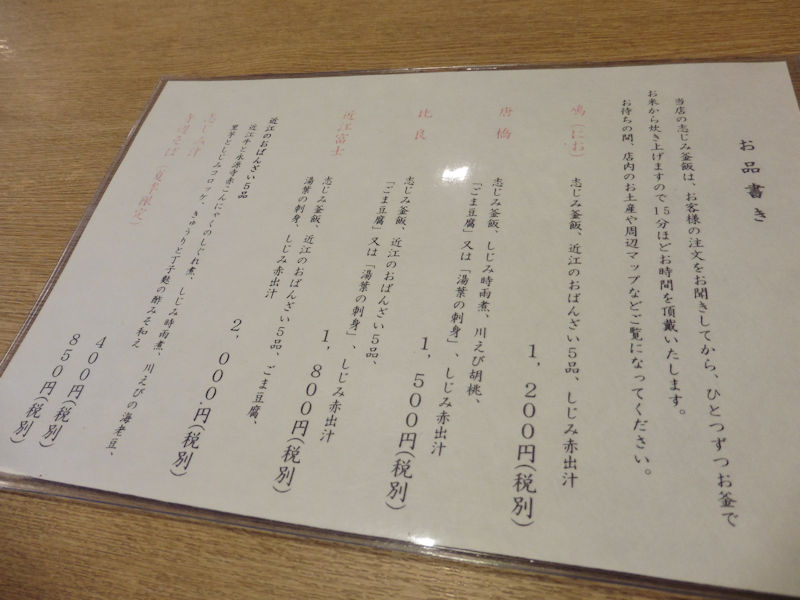 お品書き
当店の志じみ釜飯は、お客様の注文をお聞きしてから、ひとつずつお釜で
お米から炊き上げますので15分ほどお時間を頂戴いたします。
お待ちの間、店内のお土産や周辺マップなどご覧になってください。
鳰(にお)
志じみ釜飯、近江のおばんざい5品、しじみ赤出汁
1,200円(税別)
唐橋
志じみ釜飯、しじみ時雨煮、川えび胡桃、
「ごま豆腐」又は「湯葉の刺身」、しじみ赤出汁
1,500円(税別)
比良
志じみ釜飯、近江のおばんざい5品、
「ごま豆腐」又は「湯葉の刺身」、しじみ赤出汁
1,800円(税別)
近江富士
志じみ釜飯、近江のおばんざい5品、ごま豆腐、
湯葉の刺身、しじみ赤出汁
2,000円(税別)
近江のおばんざい5品
近江牛と永源寺赤こんにゃくのしぐれ煮、しじみ時雨煮、川えびの海老豆、
里芋としじみコロッケ、きゅうりと丁子麩の酢みそ和え
志じみ汁
400円(税別)
そば(夏季限定)
850円(税別)